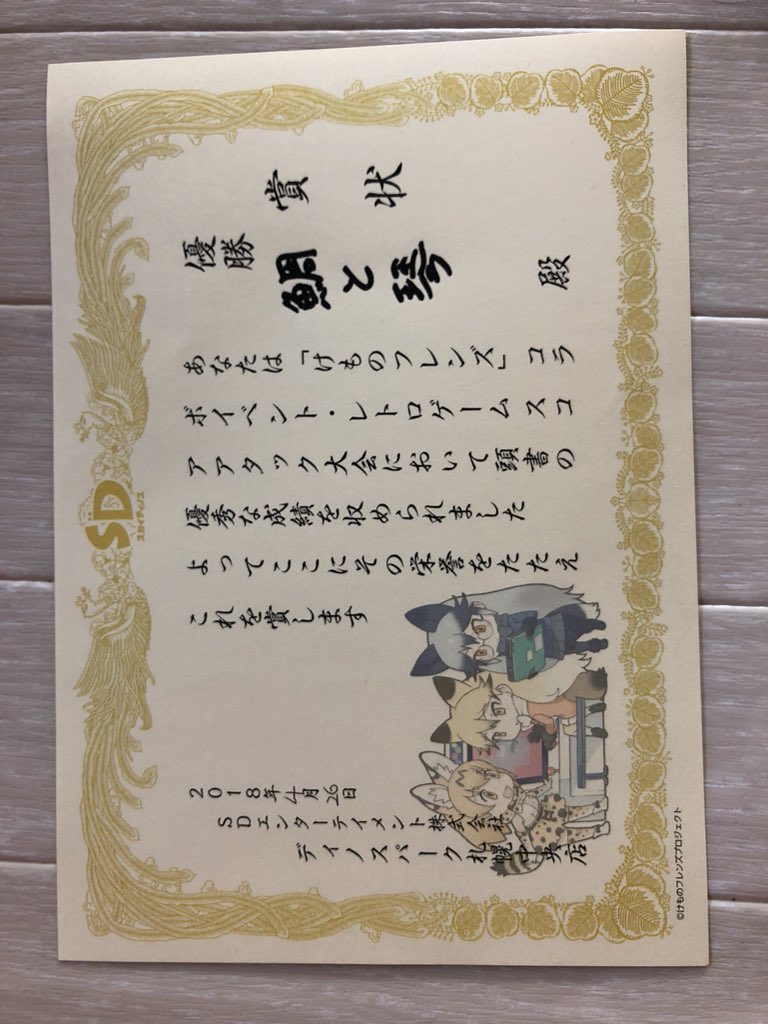 賞状
優勝
鯛と 殿
あなたは「けものフレンズ」コラ
ボイベント・レトロゲームスコ
アアタック大会において頭書の
優秀な成績を収められました
よってここにその栄誉をたたえ
これを賞します
2018年4月26日
SDエンターテイメント株式会社
ディノスパーク札幌中央店
SD
スガイディノス
©けものフレンズプロジェクト